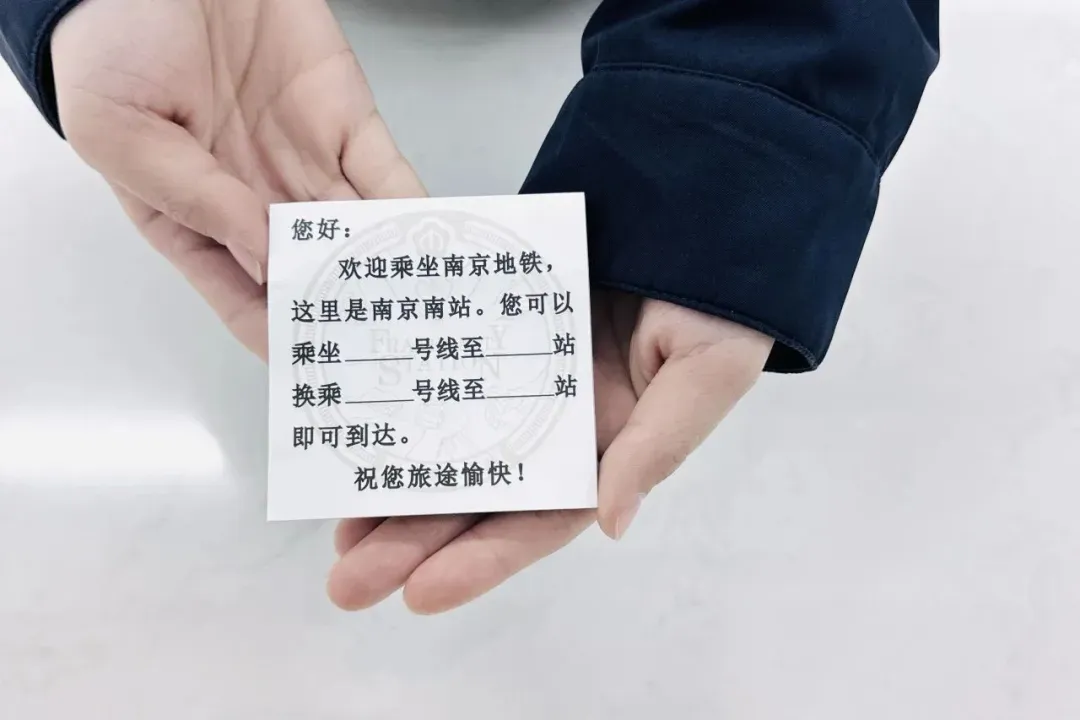 您好：
欢迎乘坐南京地铁，
这里是南京南站。您可以
乘坐______号线至______站
换乘______号线至______站
即可到达。
祝您旅途愉快！